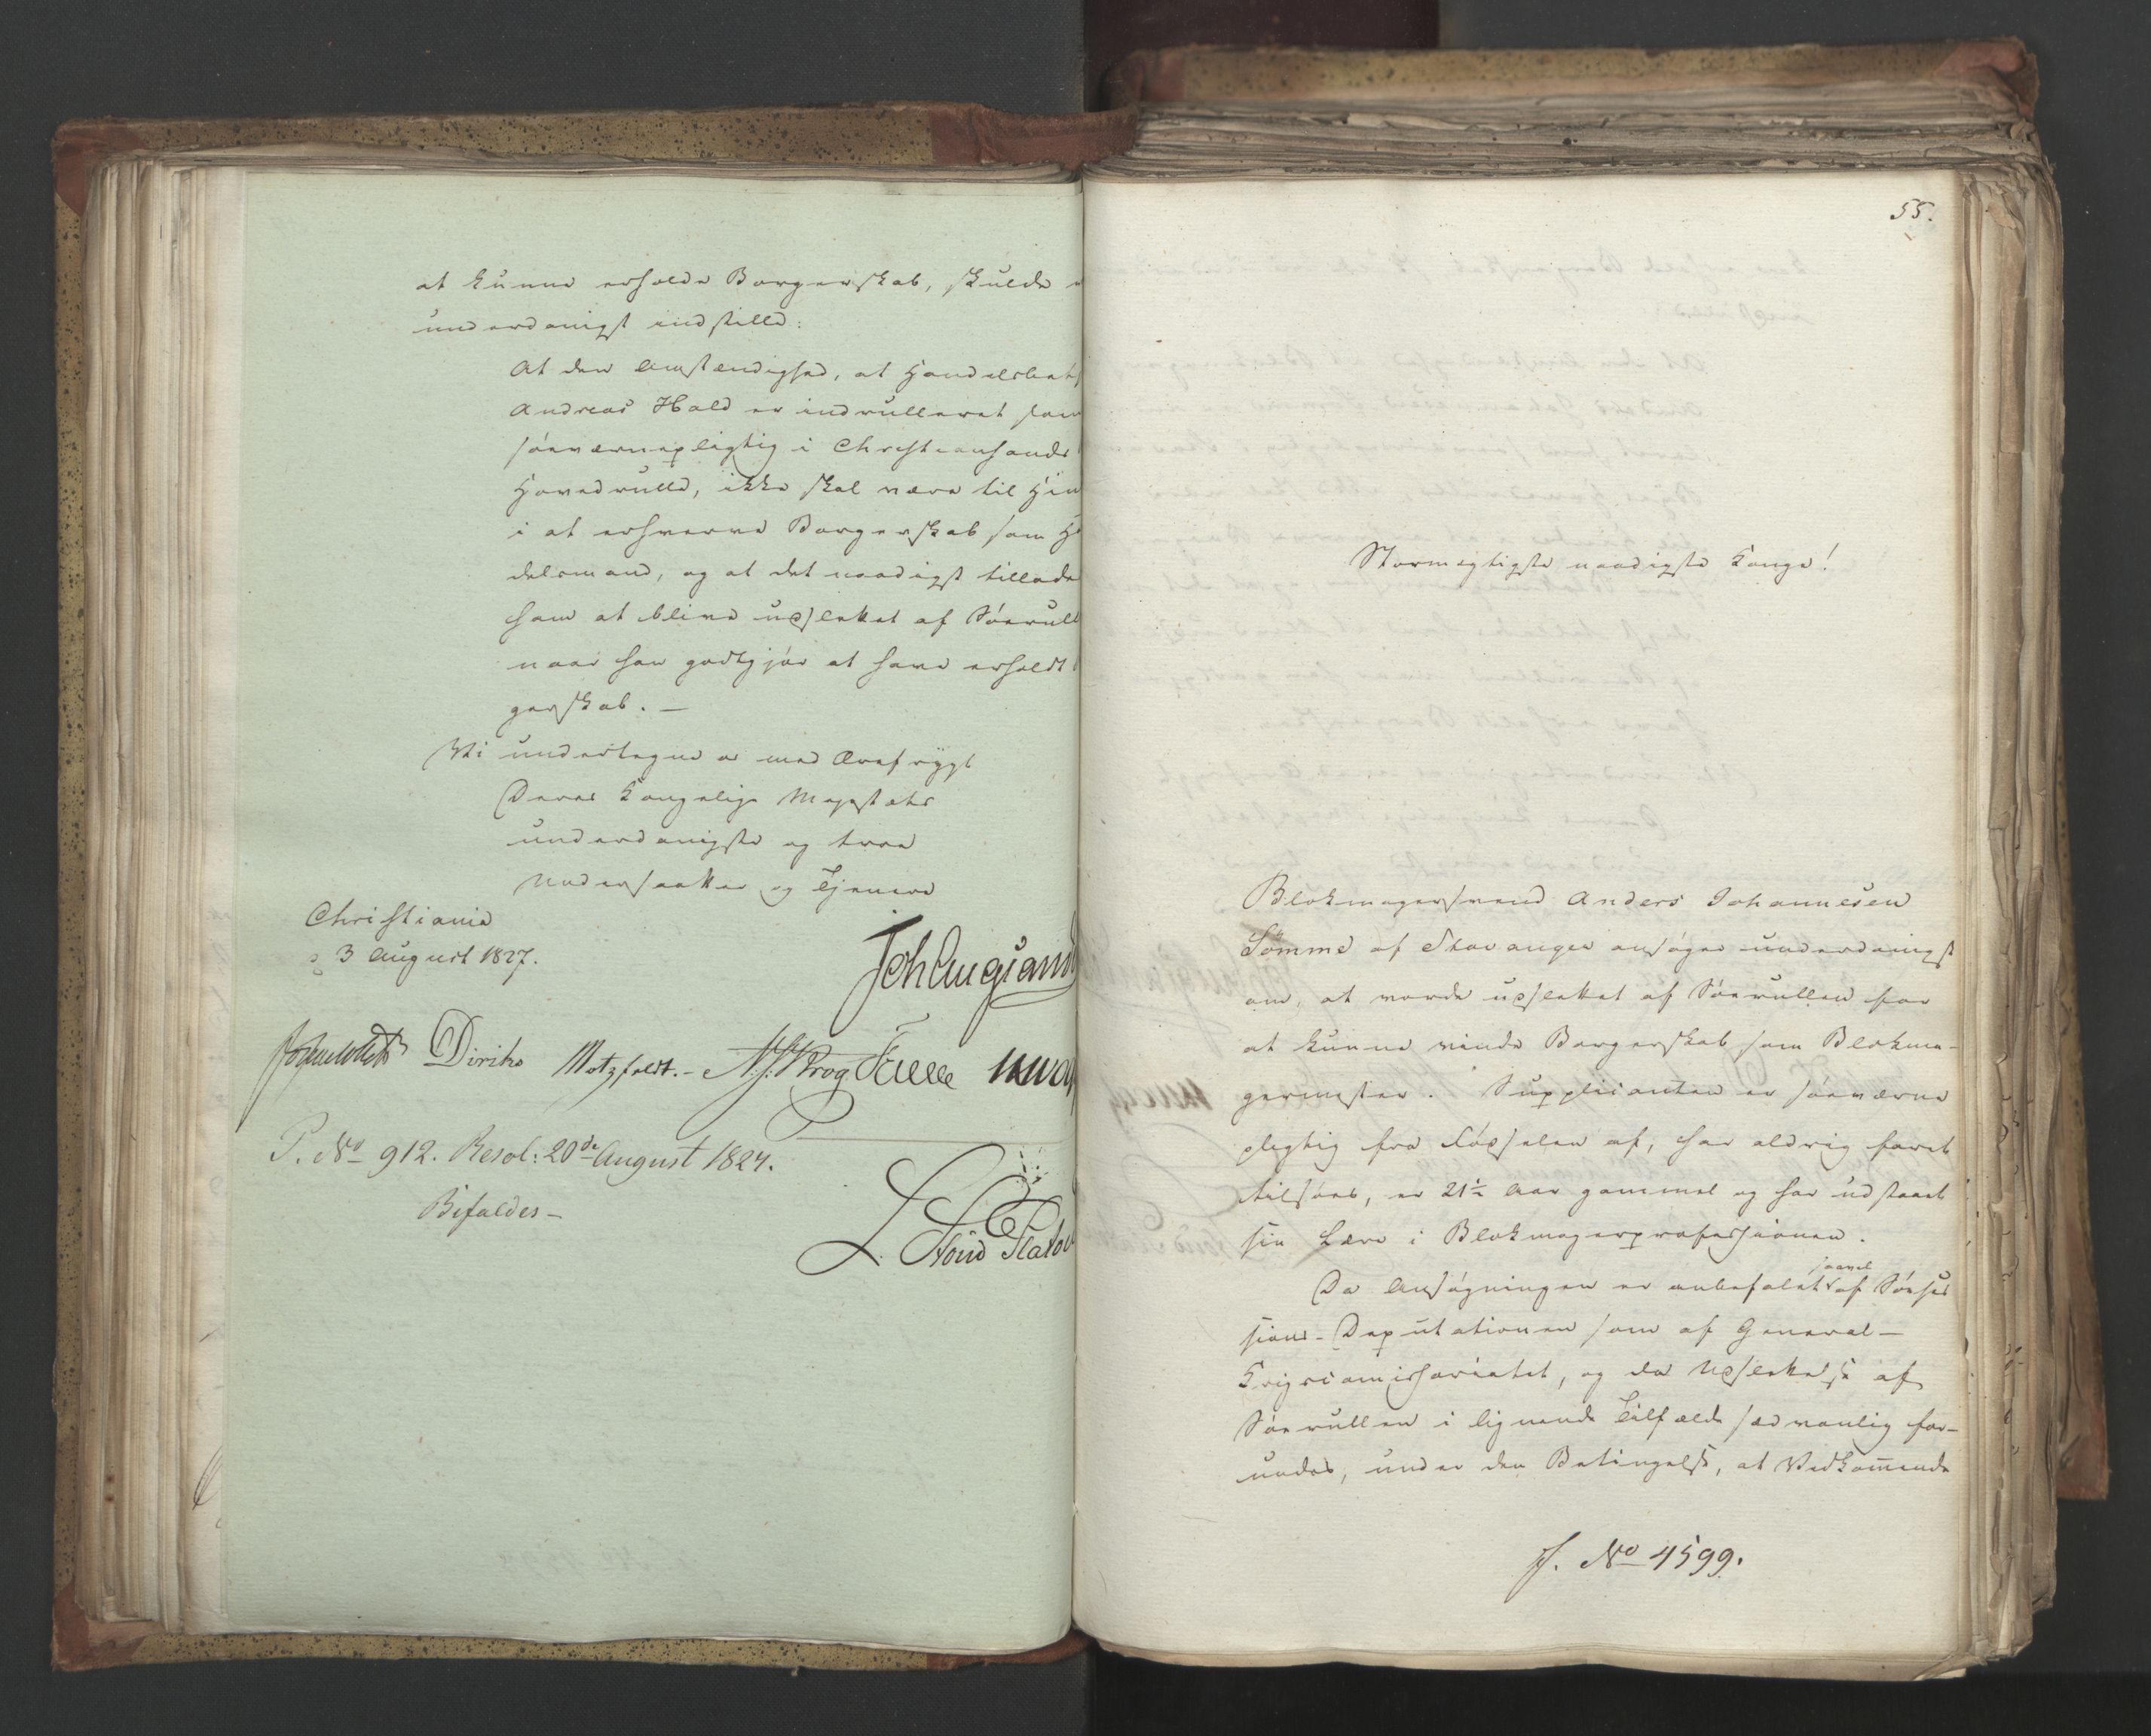 at kunne erholde Borgerskab, skulde
underdanigst indstille:
At den Omstændighed, at Handelsbetj
Andreas Hald er indrulleret som
søeværnepligtig i Christiansands
Hovedrulle, ikke skal være til Hin
i at erhverve Borgerskab som H
delsmand, og at det naadigst tillades
ham at blive udslettet af Søerull
naar han godtgjør at have erholdt
gerskab. —
Vi undertegne os med Ærefrygt
Deres Kongelige Majestæts
underdanigste og troe
Undersaatter og Tjenere
Christiania
d 3 August 1827.
Diriks Motzfeldt.
P. No 912. Resol: 20de August 1827.
Bifaldes —
55.
Stormægtigste naadigste Konge!
Blokmagersvend Anders Johannesen
Sømme af Stavanger ansøger underdanigst
om, at vorde udslettet af Søerullen for
at kunne vinde Borgerskab som Blokma-
germester. Supplicanten er søeværne
pligtig fra Fødselen af, har aldrig faret
tilsøes, er 21½ Aar gammel og har udstaaet
sin Lære i Blokmagerprofessionen.
Da Ansøgningen er anbefalet saavel af Søeses
sions-Deputationen som af General-
Krigscomissariatet, og da Udslettelse af
Søerullen i lignende Tilfælde sædvanlig for-
undes, under den Betingelse, at Vedkommende
J. No 4599.